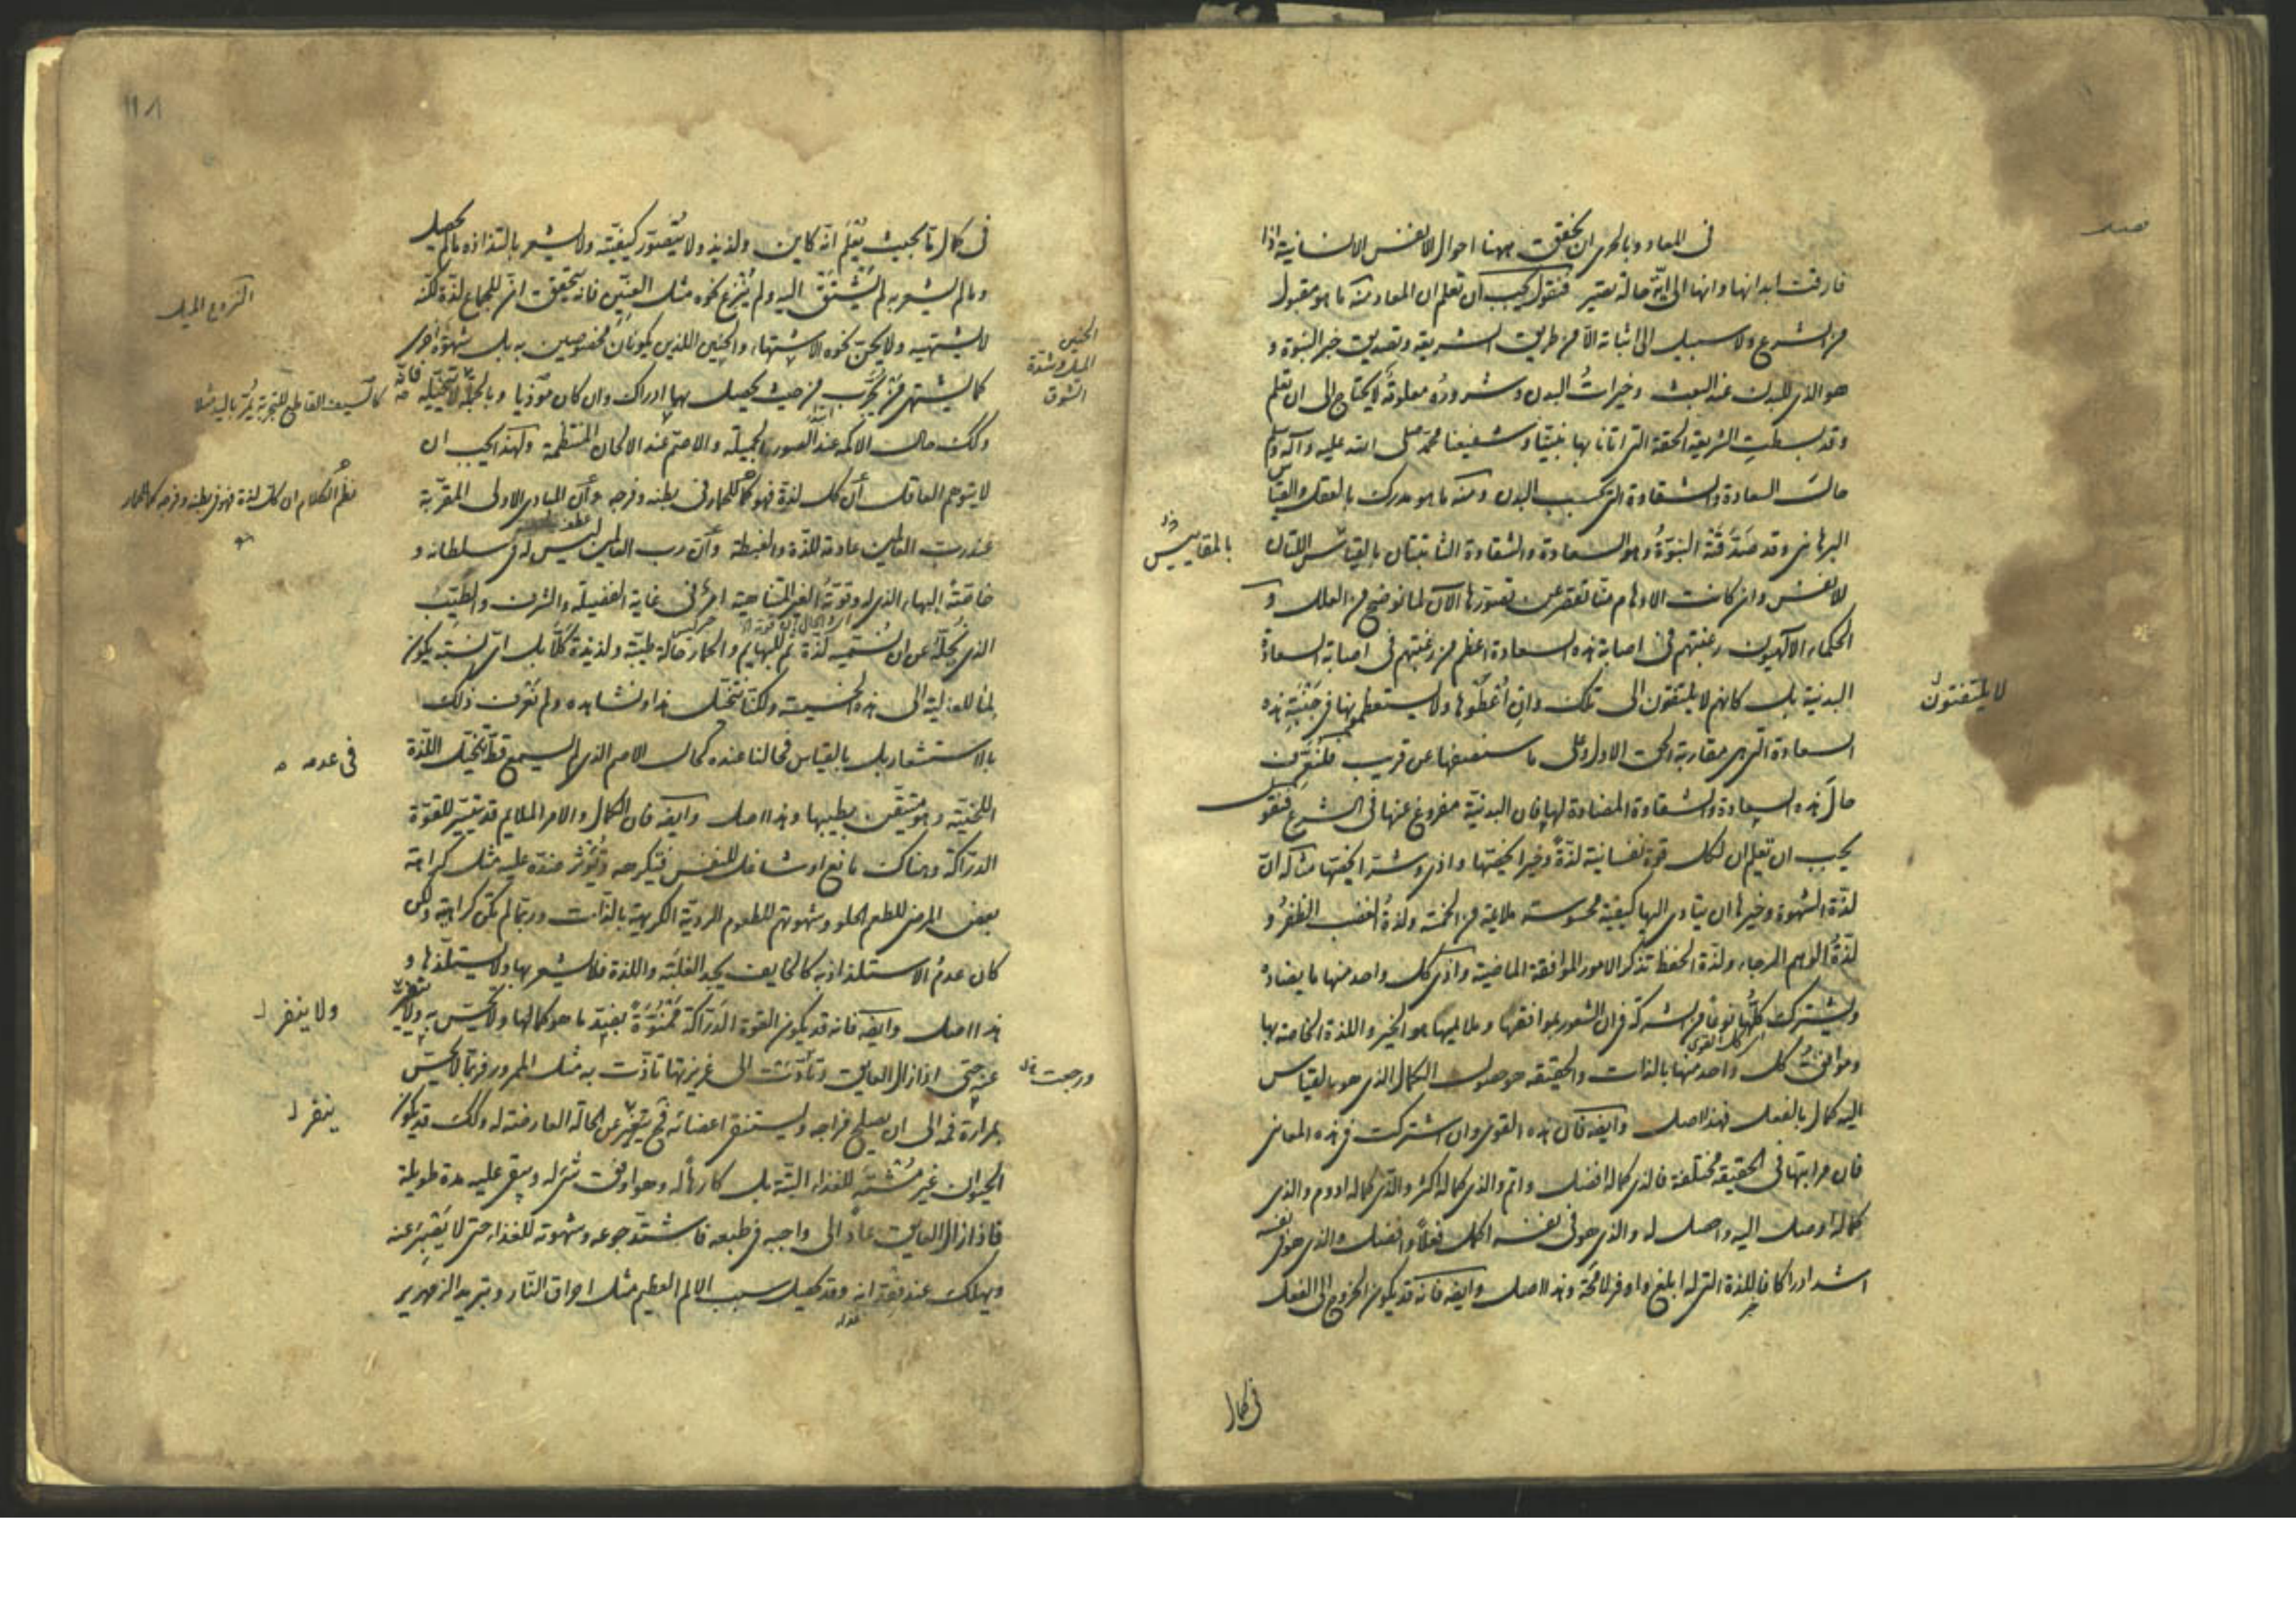 فصل
فى المعاد وبالحرى ان نحقق ههنا احوال الانفس الانسانية اذا
فارقت ابدانها وانها الى اية حالة تصير فنقول يجب ان تعلم ان المعاد منه ما هو مقبول
من الشرع ولا سبيل الى اثباته الا من طريق الشريعة وتصديق خبر النبوة و
هو الذى للبدن عند البعث وخيرات البدن وشروره معلومة لا يحتاج الى ان تعلم
وقد بسطت الشريعة الحقة التى اتانا بها نبينا وشفيعنا محمد صلى الله عليه وآله وسلم
حال السعادة والشقاوة التى بحسب البدن ومنه ما هو مدرك بالعقل والقياس
البرهانى وقد صدقته النبوة وهو السعادة والشقاوة الثابتتان بالقياس اللتان
بالمقاييس
للانفس وان كانت الاوهام منا تقصر عن تصورها الآن لما نوضح من العلل و
الحكماء الالهيون رغبتهم فى اصابة هذه السعادة اعظم من رغبتهم فى اصابة السعادة
البدنية بل كانهم لا يلتفتون الى تلك وان اعطوها ولا يستعظمونها فى جنبة هذه
لا يلتفتون
السعادة التى هى مقاربة الحق الاول وعلى ما سنصفها عن قريب فلنعرف
حال هذه السعادة والشقاوة المضادة لها فان البدنية مفروغ عنها فى الشرع فنقول
يجب ان تعلم ان لكل قوة نفسانية لذة وخيرا يخصها واذى وشرا يخصها مثاله ان
لذة الشهوة وخيرها ان يتادى اليها كيفية محسوسة ملائمة من الخمسة ولذة الغضب الظفر و
لذة الوهم الرجاء ولذة الحفظ تذكر الامور الموافقة الماضية واذى كل واحد منها ما يضاده
ويشترك كلها نوعا من الشركة فى ان الشعور بموافقها وملائمها هو الخير واللذة الخاصة بها
اى كل القوى
وموافق كل واحد منها بالذات والحقيقة هو حصول الكمال الذى هو بالقياس
اليه كمال بالفعل فهذا اصل وايضه فان هذه القوى وان اشتركت فى هذه المعانى
فان مراتبها فى الحقيقة مختلفة فالذى كماله افضل واتم والذى كماله اكثر والذى كماله ادوم والذى
كماله اوصل اليه واحصل له والذى هو فى نفسه اكمل فعلا وافضل والذى هو فى نفسه
اشد ادراكا فاللذة التى له ابلغ واوفر لا محة وهذا اصل وايضه فانه قد يكون الخروج الى الفعل
فى كمال
١١٨
فى كمال ما بحيث يعلم انه كاين ولذيذ ولا يتصور كيفيته ولا يشعر بالتذاذه ما لم يحصل
وما لم يشعر به لم يشتق اليه ولم ينزع نحوه مثل العنين فانه يتحقق ان للجماع لذة لكنه
النزوع الميل
لا يشتهيه ولا يحن نحوه الاشتهاء والحنين اللذين يكونان مخصوصين به بل شهوة اخرى
الحنين
الميل وشدة
الشوق
كما يشتهى من يجرب من حيث يحصل بها ادراك وان كان موذيا وبالجملة لا يتخيله فانه
كالسيف القاطع للتجربة يمر باليد مثلا
وكك حال الاكمه عند الصور الجميلة والاصم عند الالحان المنتظمة ولهذا يجب ان
لا يتوهم العاقل ان كل لذة فهو كما للحمار فى بطنه وفرجه وان المبادى الاولى المقربة
نظم الكلام ان كل لذة فهو فى بطنه وفرجه كما للحمار
عند رب العالمين عادمة للذة والغبطة وان رب العالمين ليس له فى سلطانه و
خاصته البهاء الذى له وقوته الغير المتناهية امر فى غاية الفضيلة والشرف والطيب
الذى نجله عن ان نسميه لذة ثم للبهايم والحمار حالة طيبة ولذيذة كلا بل اى نسبة يكون
لما للعالية الى هذه الخسيسة ولكنا نتخيل هذا ونشاهده ولم نعرف ذلك
بالاستشعار بل بالقياس فحالنا عنده كحال الاصم الذى لم يسمع قط بتخيل اللذة
فى عدمه
اللحنية وهو متيقن بطيبها وهذا اصل وايضه فان الكمال والامر الملايم قد يتيسر للقوة
الدراكة وهناك مانع او شاغل للنفس فتكرهه وتؤثر ضده عليه مثل كراهة
بعض المرضى للطعم الحلو وشهوتهم للطعوم الردية الكريهة بالذات وربما لم تكن كراهية ولكن
كان عدم الاستلذاذ به كالخايف يجد الغلبة واللذة فلا يشعر بها ولا يستلذها و
هذا اصل وايضه فانه قد يكون القوة الدراكة ممنوة بضد ما هو كمالها ولا يحس به ولا ينفر
ولا ينفر
عنه حتى اذا زال العايق وتأذت الى غريزتها تأذت به مثل الممرور فربما لا يحس
ورجعت
بمرارة فمه الى ان يصلح مزاجه ويستنقى اعضائه فح ينفر عن الحالة العارضة له وكك قد يكون
ينفر
الحيوان غير مشته للغذاء البتة بل كارها له وهو اوفق شى له ويبقى عليه مدة طويلة
فاذا زال العايق عاد الى واجبه فى طبعه فاشتد جوعه وشهوته للغذاء حتى لا يصبر عنه
ويهلك عند فقدانه وقد يحصل سبب الالم العظيم مثل احراق النار وتبريد الزمهرير